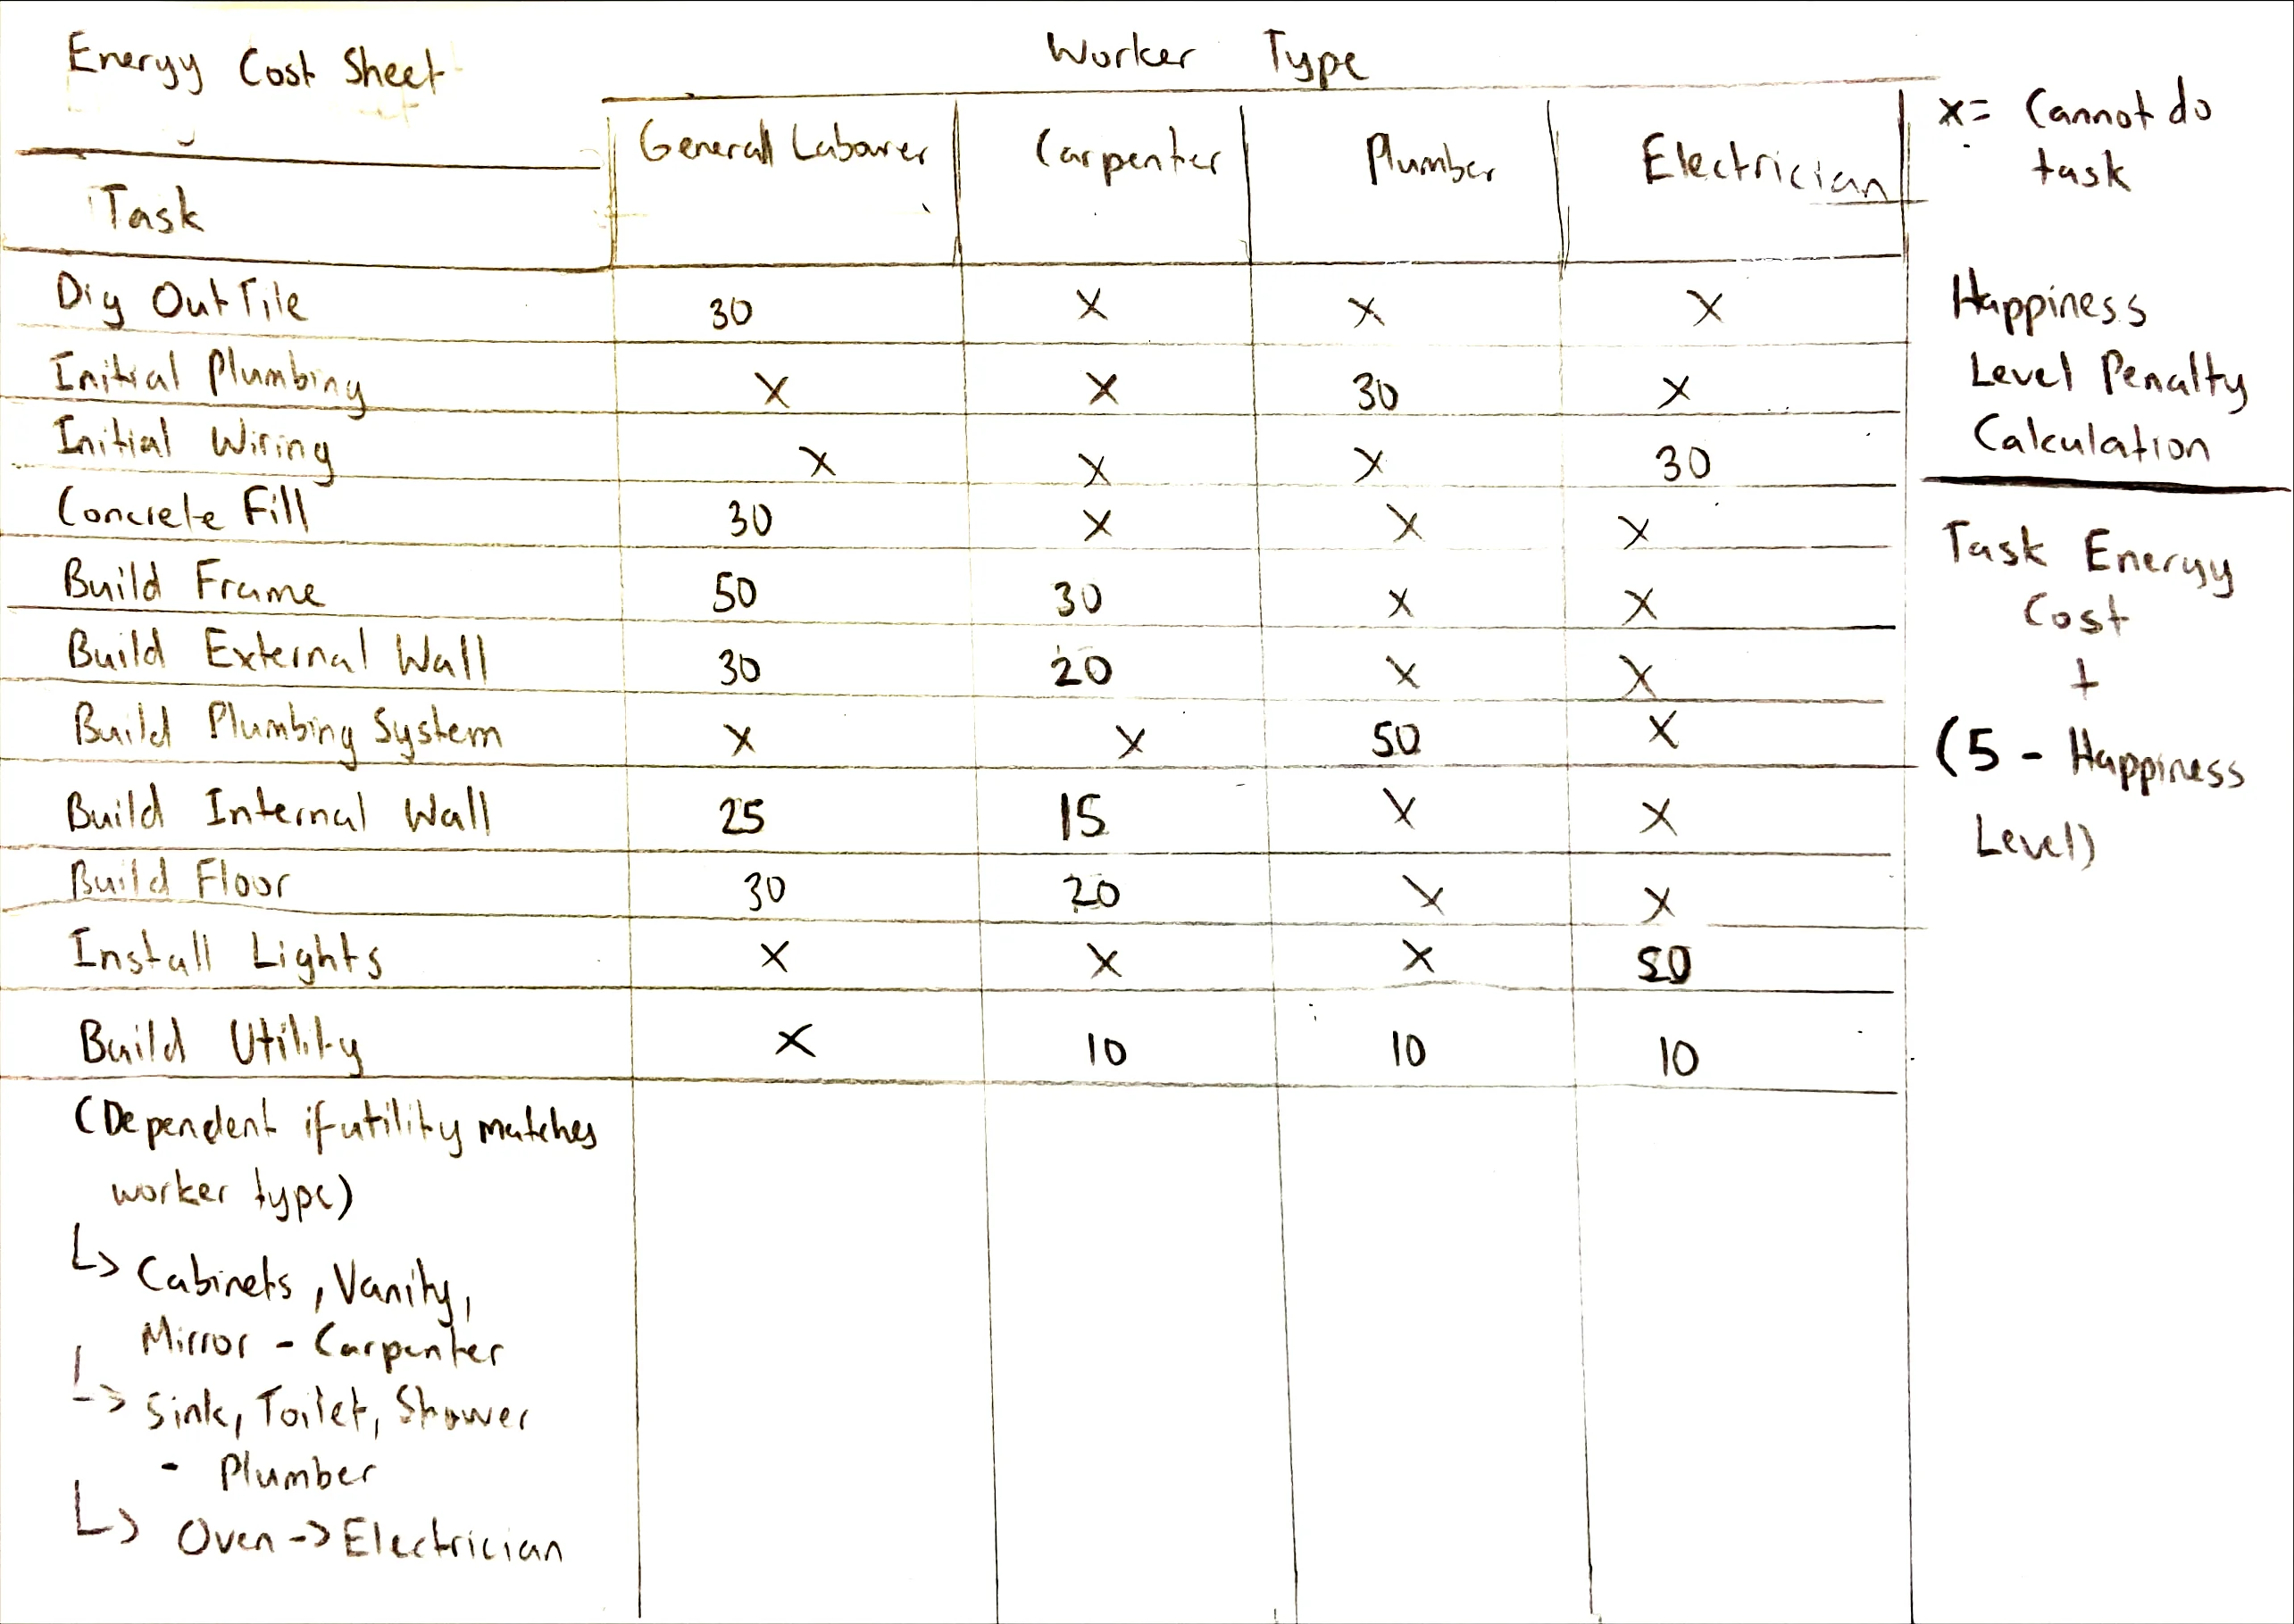 Energy Cost Sheet
Worker Type
Task
General Labourer Carpenter Plumber Electrician
x = Cannot do
task
Dig Out Tile 30 X X X
Initial Plumbing X X 30 X
Initial Wiring X X X 30
Concrete Fill 30 X X X
Build Frame 50 30 X X
Build External Wall 30 20 X X
Build Plumbing System X X 50 X
Build Internal Wall 25 15 X X
Build Floor 30 20 X X
Install Lights X X X 50
Build Utility X 10 10 10
(Dependent if utility matches
worker type)
↳ Cabinets, Vanity,
Mirror - Carpenter
↳ Sink, Toilet, Shower
- Plumber
↳ Oven -> Electrician
Happiness
Level Penalty
Calculation
Task Energy
Cost
+
(5 - Happiness
Level)